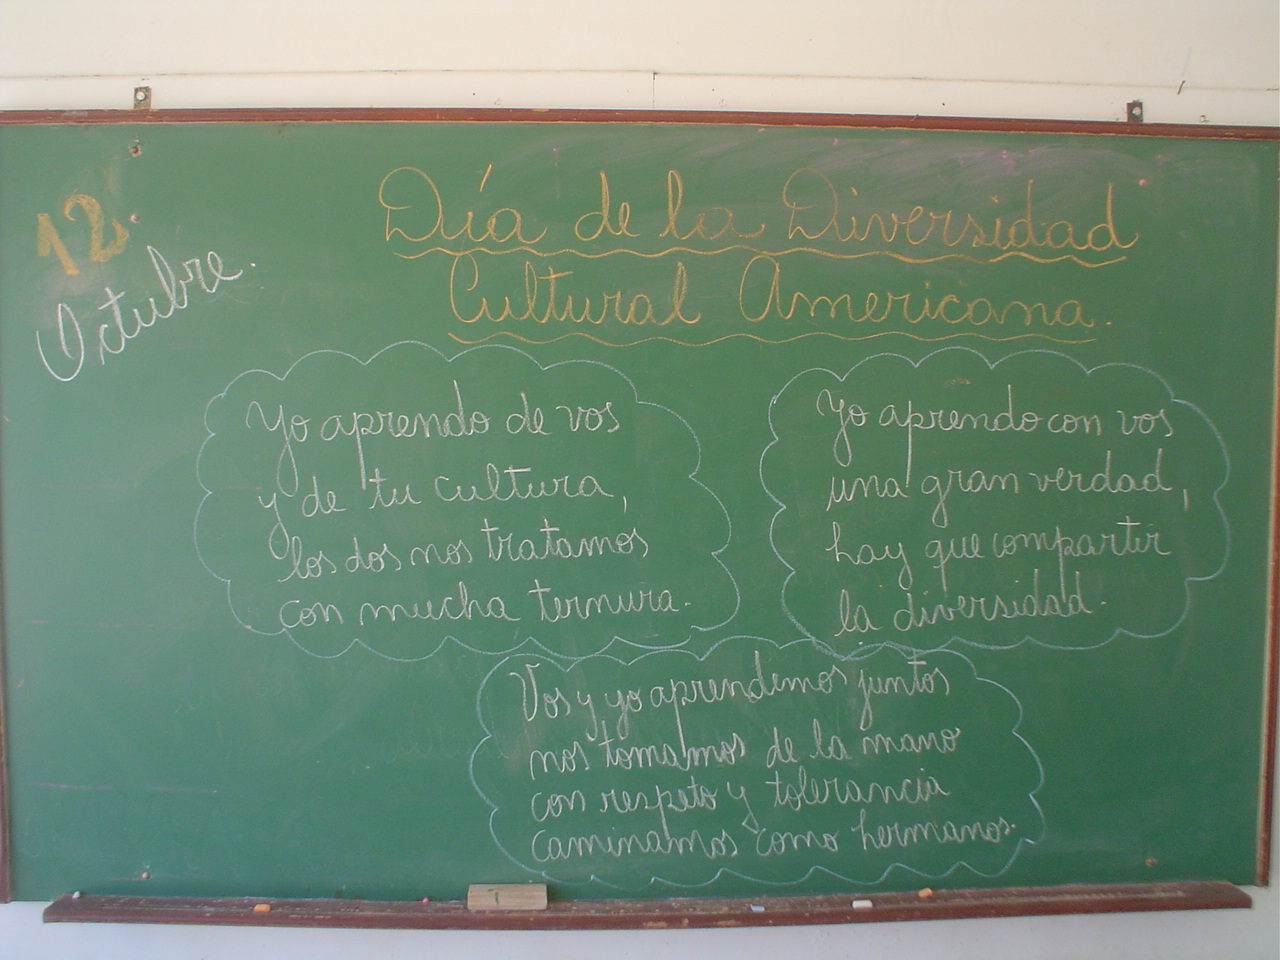 12
Octubre.
Día de la Diversidad
Cultural Americana.
Yo aprendo de vos
y de tu cultura,
los dos nos tratamos
con mucha ternura.
Yo aprendo con vos
una gran verdad,
hay que compartir
la diversidad.
Vos y yo aprendemos juntos
nos tomamos de la mano
con respeto y tolerancia
caminamos como hermanos.